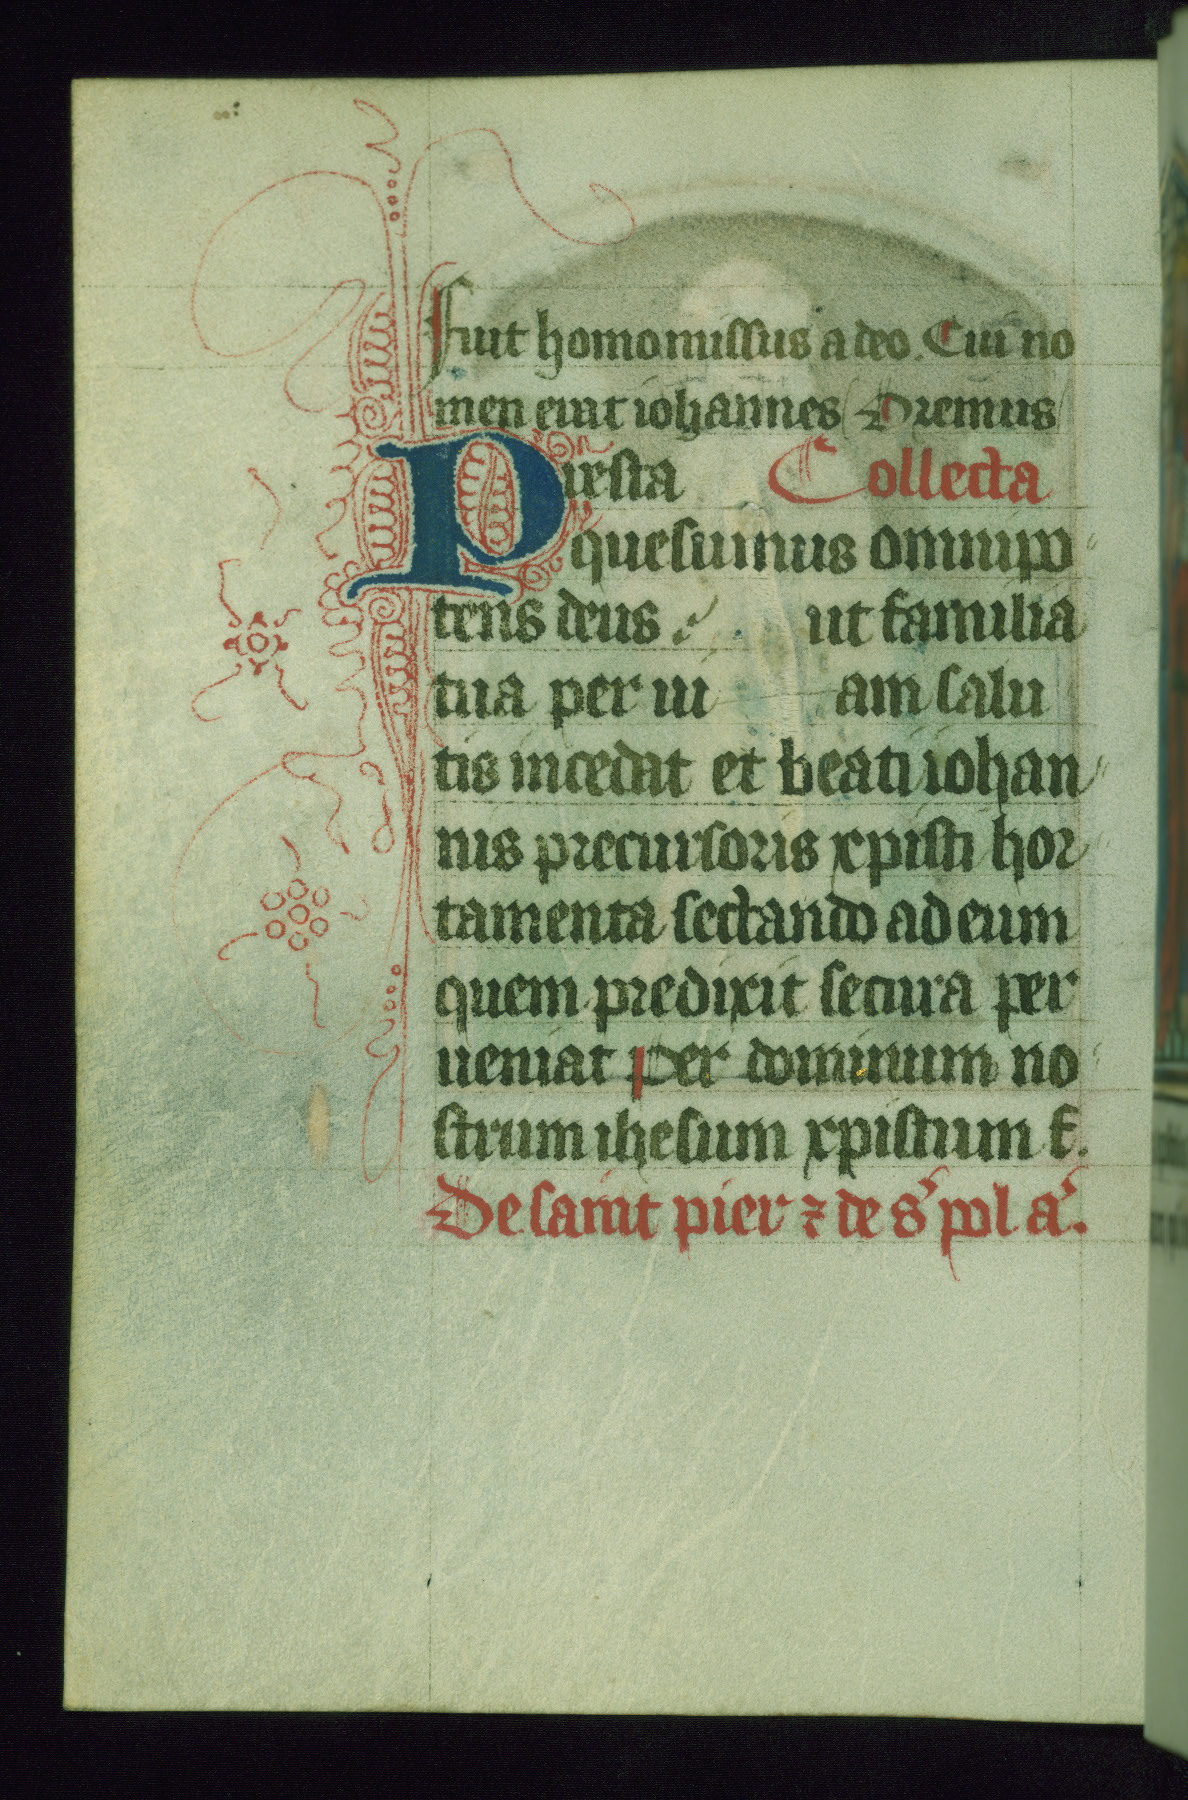 Fuit homo missus a deo. Cui no
men erat iohannes Oremus
Presta Collecta
quesumus omnipo
tens deus ut familia
tua per ui am salu
tis incedat et beati iohan
nis precursoris xpisti hor
tamenta sectando ad eum
quem predixit secura per
ueniat Per dominum no
strum ihesum xpistum f.
De saint pier ⁊ de s' pol a'.